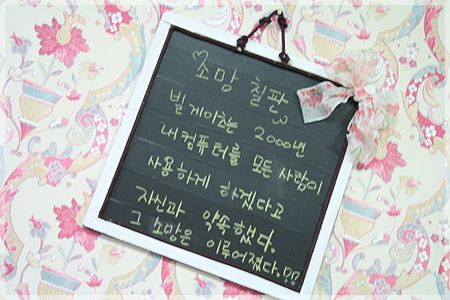 ♡소망 칠판♡
빌 게이츠는 2000년
내 컴퓨터를 모든 사람이
사용하게 하겠다고
자신과 약속했다.
그 소망은 이루어졌다.!!